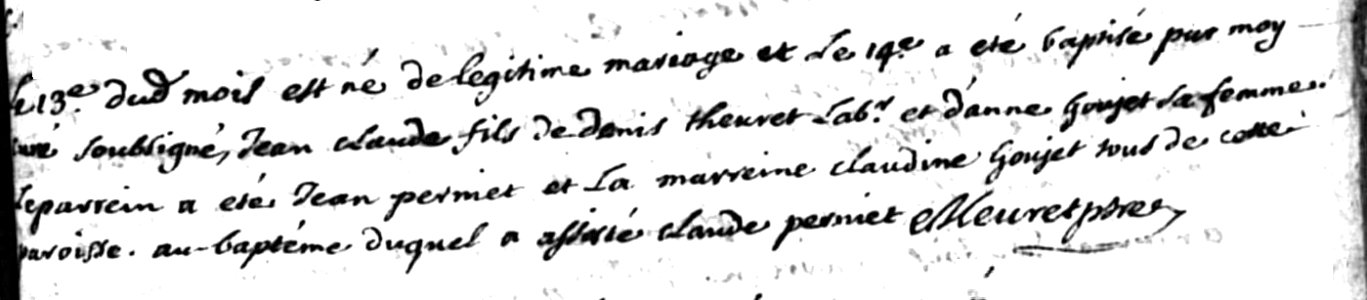 le 13e. dud mois est né de legitime mariage et le 14e. a eté baptisé par moy
curé soubsigné, Jean claude fils de denis theuret lab.r et d'anne Goujet sa femme.
le parrein a eté Jean perniet et la marreine claudine Goujet tous de cette
paroisse. au baptéme duquel a assisté claude perniet Meuret ptre